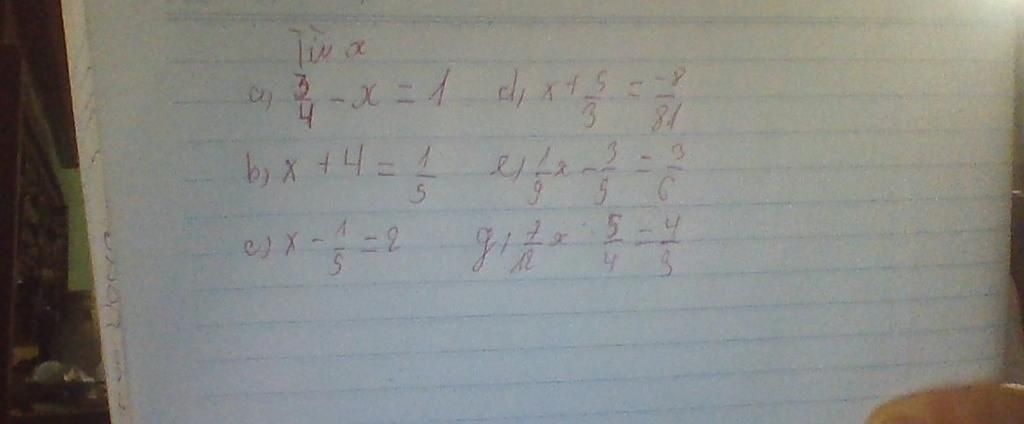 Tìm x
a, 3/4 - x = 1 d, x + 5/3 = -8/81
b, x + 4 = 1/5 e, 1/9 x - 3/5 = 3/6
c, x - 1/5 = 2 g, 7/12 x 5/4 = 4/3